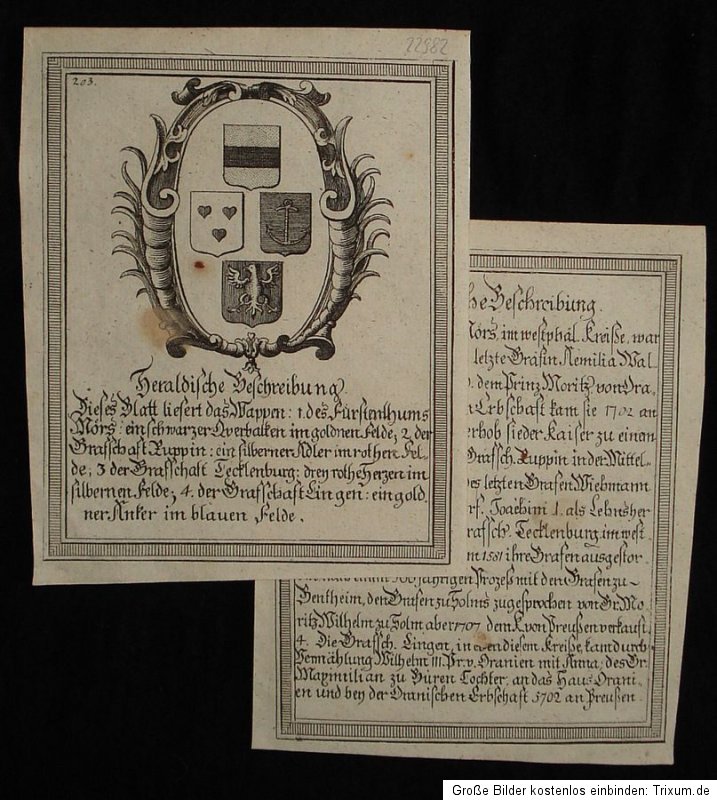 22582
203.
Heraldische Beschreibung
Dieses Blatt liefert das Wappen: 1. des Fürstenthums
Mörs: ein schwarzer Qverbalken im goldnen Felde; 2. der
Grafschaft Ruppin: ein silberner Adler im rothen Fel-
de; 3 der Grafschaft Tecklenburg: drey roth Herzen im
silbernen Felde; 4. der Grafschaft Lingen: ein gold
ner Anker im blauen Felde.
he Beschreibung.
Mörs, im westphäl. Kreiße, war
letzte Gräfin Aemilia Wal-
dem Prinz Moritz von Ora-
Erbschaft kam sie 1702 an
erhob sie der Kaiser zu einem
Grafsch. Ruppin in der Mittel-
es letzten Grafen Wichmann
rf. Joachim I. als Lehnsher
rafsch. Tecklenburg im west-
m 1581 ihre Grafen ausgestor-
jährigen Prozeß mit den Grafen zu
Bentheim, den Grafen zu Solms zugesprochen von Gr. Mo-
ritz Wilhelm zu Solm aber 1707 dem K. von Preußen verkauft
4. Die Grafsch. Lingen, in even diesem Kreiße, kam durch
Vermählung Wilhelm III. Pr. v. Oranien mit Anna, des Gr.
Maximilian zu Büren Tochter, an das Haus Orani-
en und bey der Oranischen Erbschaft 1702 an Preußen.
Große Bilder kostenlos einbinden: Trixum.de